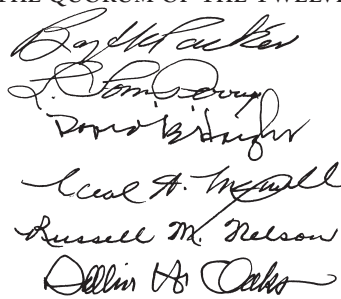 THE QUORUM OF THE TWELVE
Boyd K Packer
L. Tom Perry
David B Haight
Neal A. Maxwell
Russell M. Nelson
Dallin H. Oaks